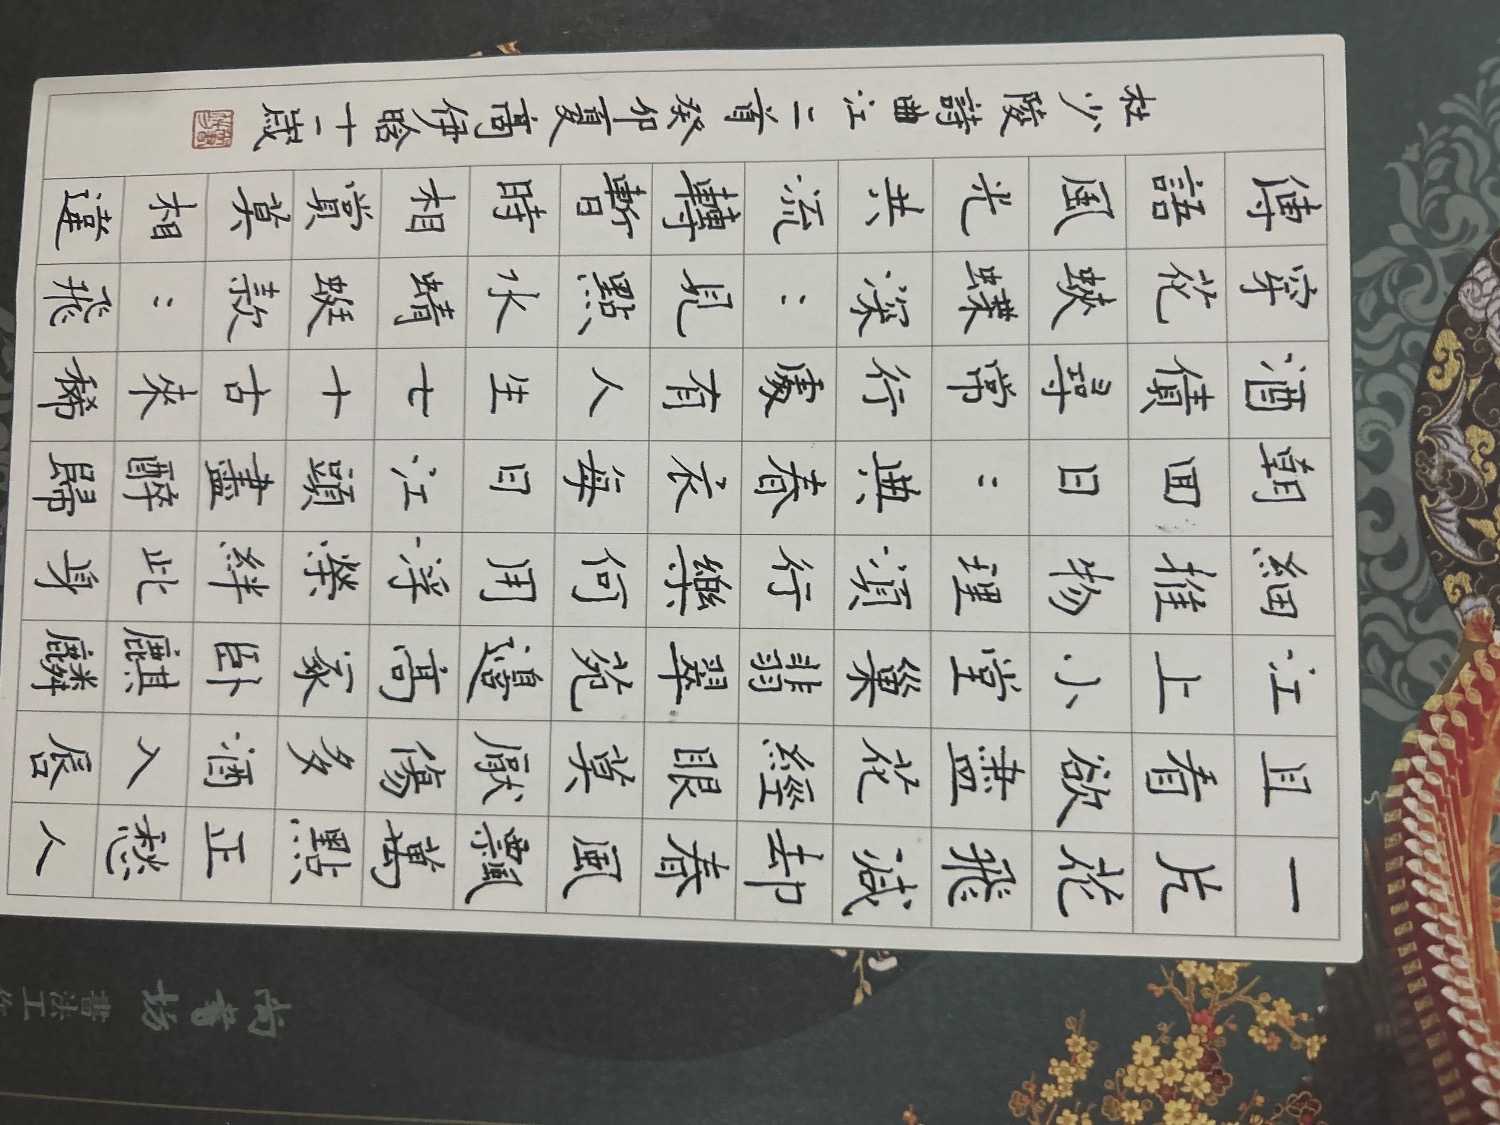 一片花飛減却春風飄萬點正愁人
且看欲盡花經眼莫厭傷多酒入唇
江上小堂巢翡翠苑邊高冢臥麒麟
細推物理須行樂何用浮榮絆此身
朝回日:典春衣每日江頭盡醉歸
酒債尋常行處有人生七十古來稀
穿花蛺蝶深:見點水蜻蜓款:飛
傳語風光共流轉暫時相賞莫相違
杜少陵詩曲江二首癸卯夏高伊晗十一歲
尚書坊
書法工